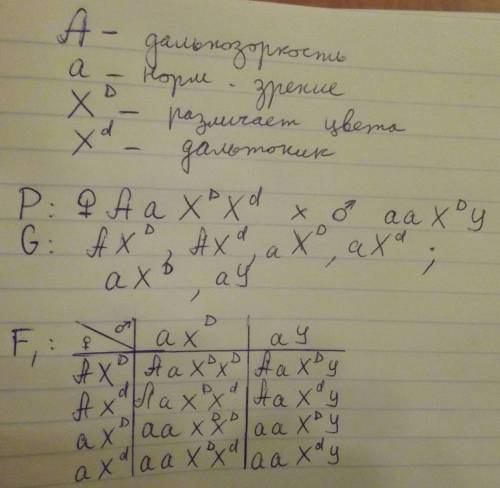 A – дальнозоркость
a – норм. зрение
X^D – различает цвета
X^d – дальтоник
P: ♀ A a X^D X^d × ♂ a a X^D У
G: A X^D, A X^d, a X^D, a X^d;
a X^D, a У
F₁: ♀ ♂ a X^D a У
A X^D A a X^D X^D A a X^D У
A X^d A a X^D X^d A a X^d У
a X^D a a X^D X^D a a X^D У
a X^d a a X^D X^d a a X^d У